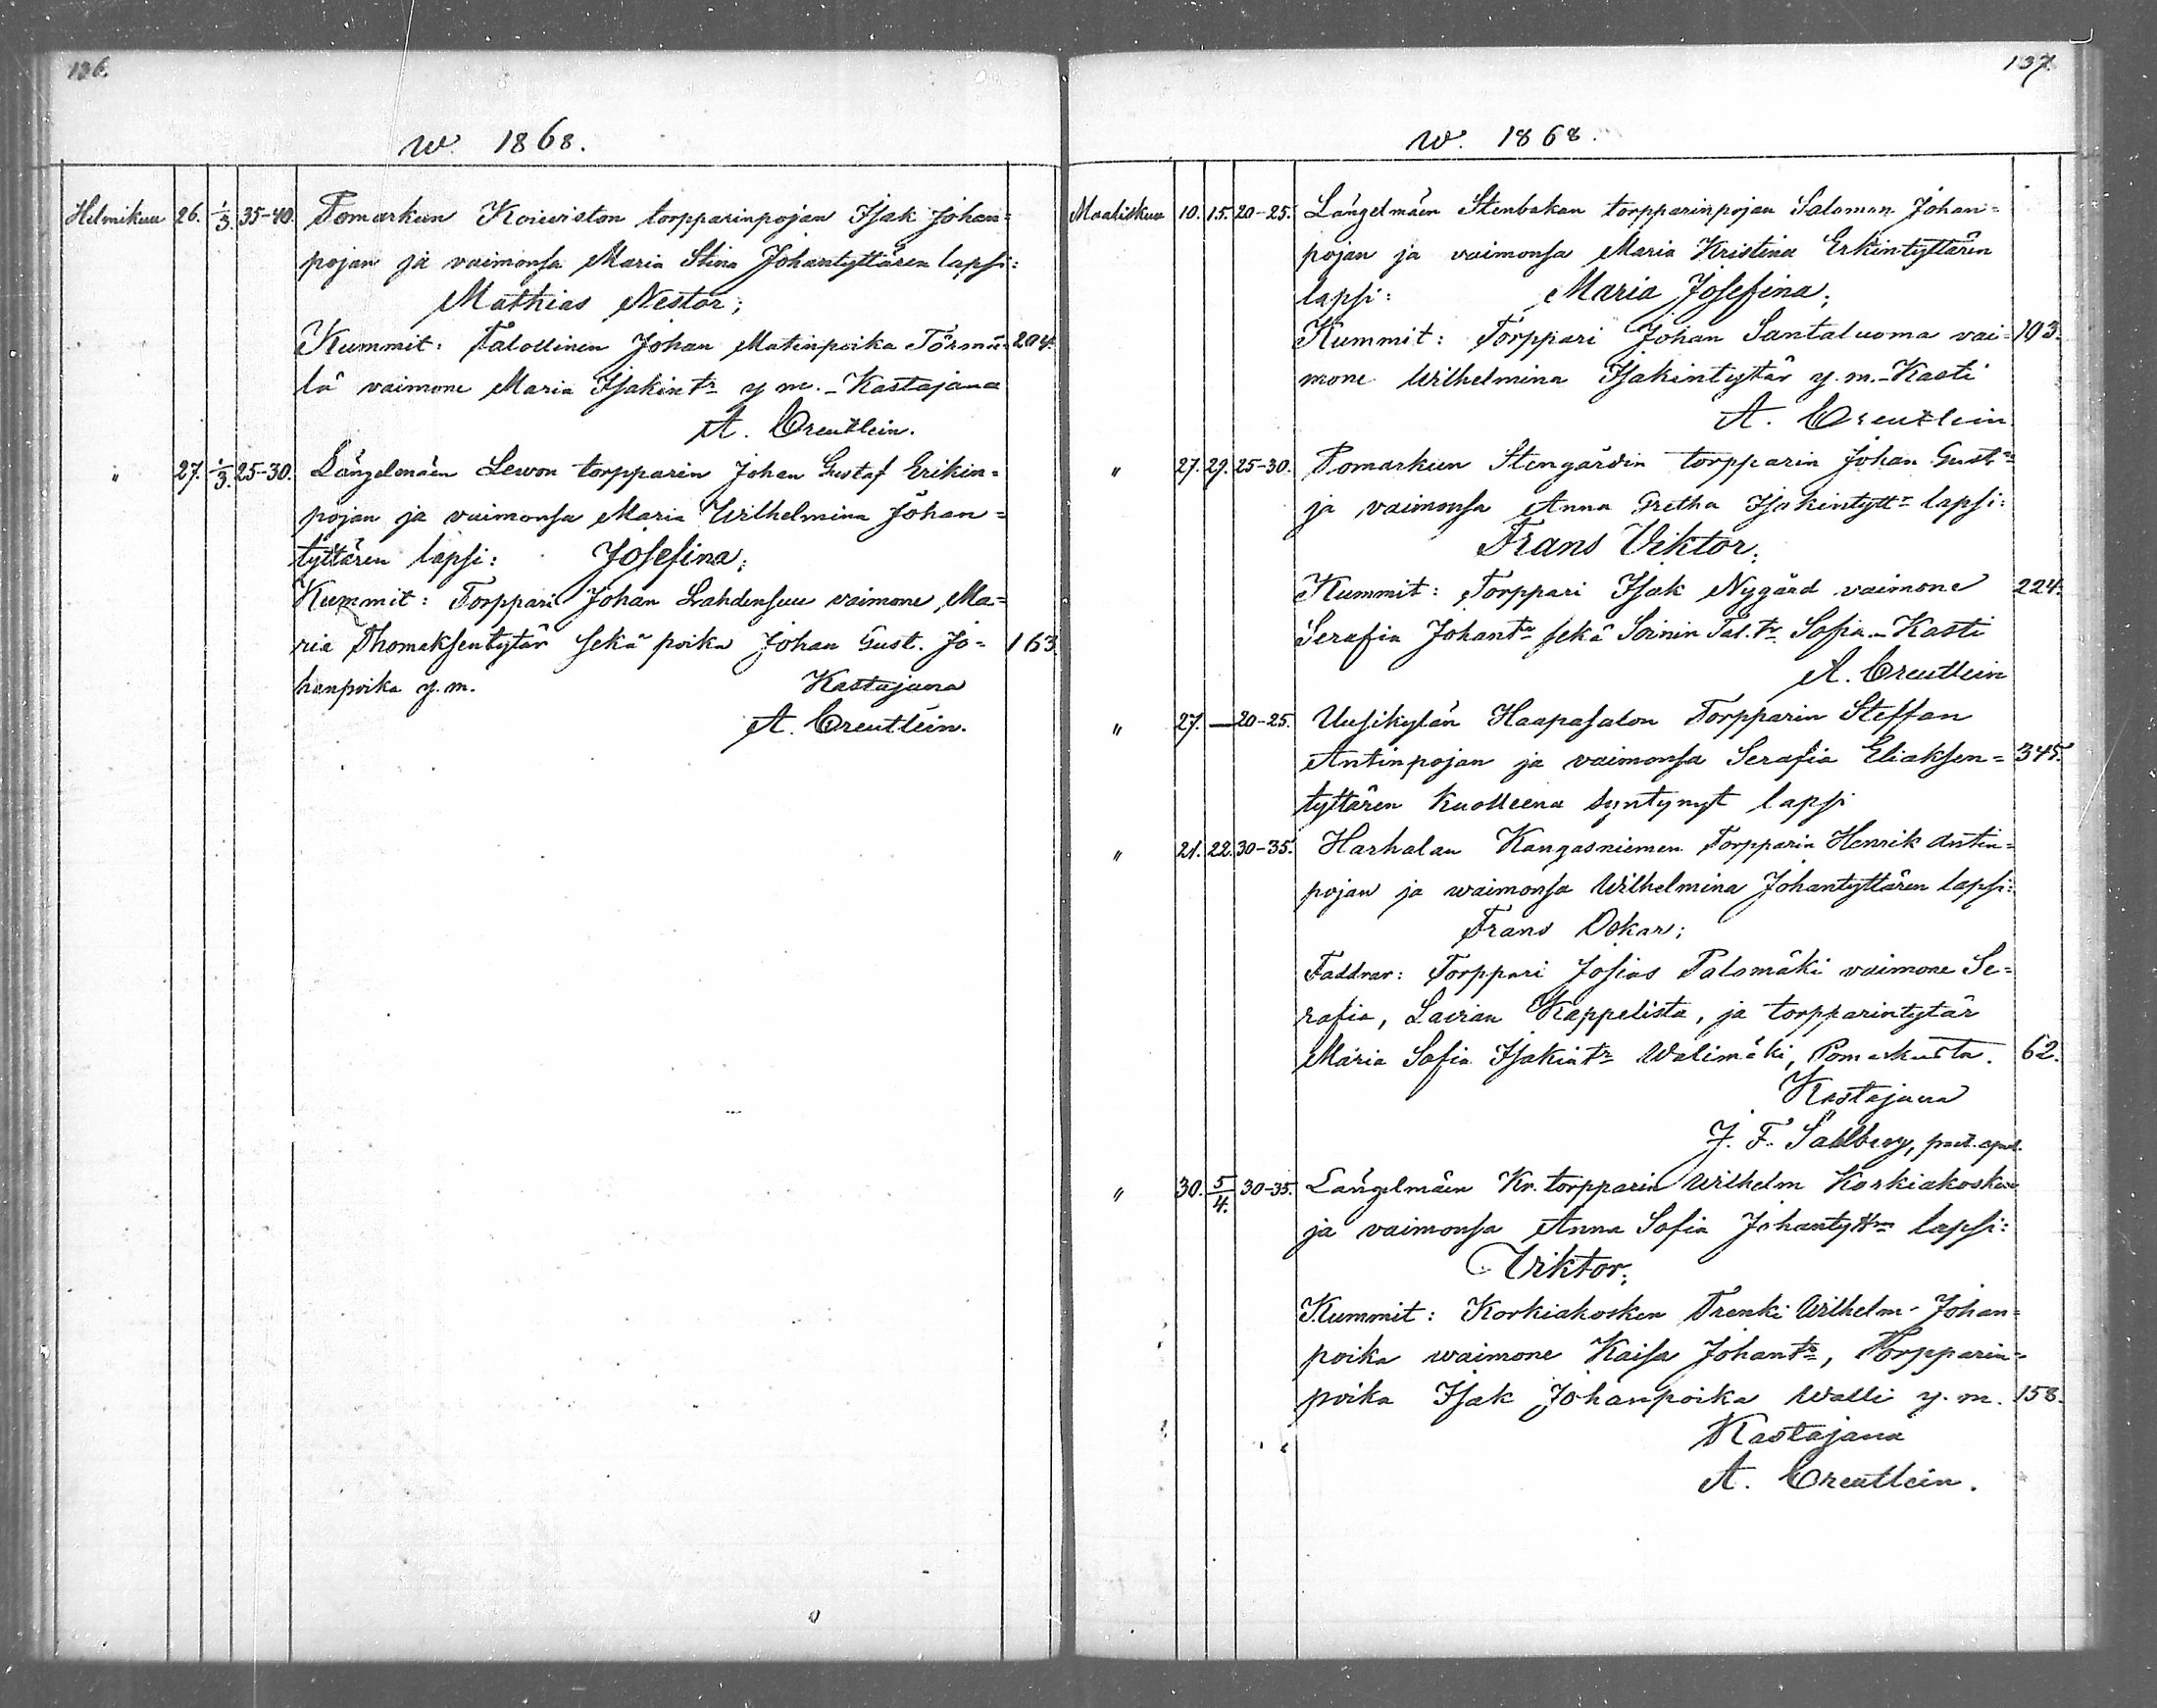 136.
w. 1868.
Helmikuu 26. 1/3. 35-40. Pomarkun Koiwiston torpparinpojan Isak Johan=
pojan ja vaimonsa Maria Stina Johantyttären lapsi:
Mathias Nestor;
Kummit: Talollinen Johan Matinpoika Törmä= 204.
lä vaimone Maria Isakintr y m. - Kastajana
A. Creutlein.
" 27. 1/3. 25-30. Längelmäen Lewon torpparin Johan Gustaf Erikin=
pojan ja vaimonsa Maria Wilhelmina Johan=
tyttären lapsi: Josefina;
Kummit: Torppari Johan Lahdensuu vaimone, Ma=
ria Thomaksentytär sekä poika Johan Gust. Jo= 163
hanpoika y. m. Kastajana
A. Creutlein.
137.
w. 1868.
Maaliskuu 10. 15. 20-25. Längelmäen Stenbakan torpparinpojan Salomon Johan=
pojan ja vaimonsa Maria Kristina Erkintyttären
lapsi: Maria Josefina;
Kummit: Torppari Johan Santaluoma vai= 193.
mone Wilhelmina Isakintytär y. m. - Kasti
A. Creutlein
" 27. 29. 25-30. Pomarkun Stengårdin torpparin Johan Gust
ja vaimonsa Anna Gretha Isakintytt lapsi:
Frans Viktor;
Kummit: Torppari Isak Nygård vaimone 224.
Serafia Johantr sekä Soinin Tal. tr Sofia - Kasti
A. Creutlein
" 27. — 20-25. Uusikylän Haapasalon Torpparin Steffan
Antinpojan ja vaimonsa Serafia Eliaksen= 345.
tyttären kuolleena syntynyt lapsi
" 21. 22. 30-35. Harhalan Kangasniemen Torpparin Henrik Antin=
pojan ja waimonsa Wilhelmina Johantyttären lapsi:
Frans Oskar;
Faddrar: Torppari Josias Palomäki vaimone Se=
rafia, Lavian Kappelista, ja torpparintytär
Maria Sofia Isakintr Walimäki, Pomarkusta. 62.
Kastajana
J. F. Sallberg,
" 30. 5/4. 30-35. Längelmäen Kr. torpparin Wilhelm Korkiakosken
ja vaimonsa Anna Sofia Johantyttren lapsi:
Viktor;
Kummit: Korkiakosken Trenki Wilhelm Johan=
poika waimone Kaisa Johantr, Torpparin=
poika Isak Johanpoika Walli y. m. 158.
Kastajana
A. Creutlein.